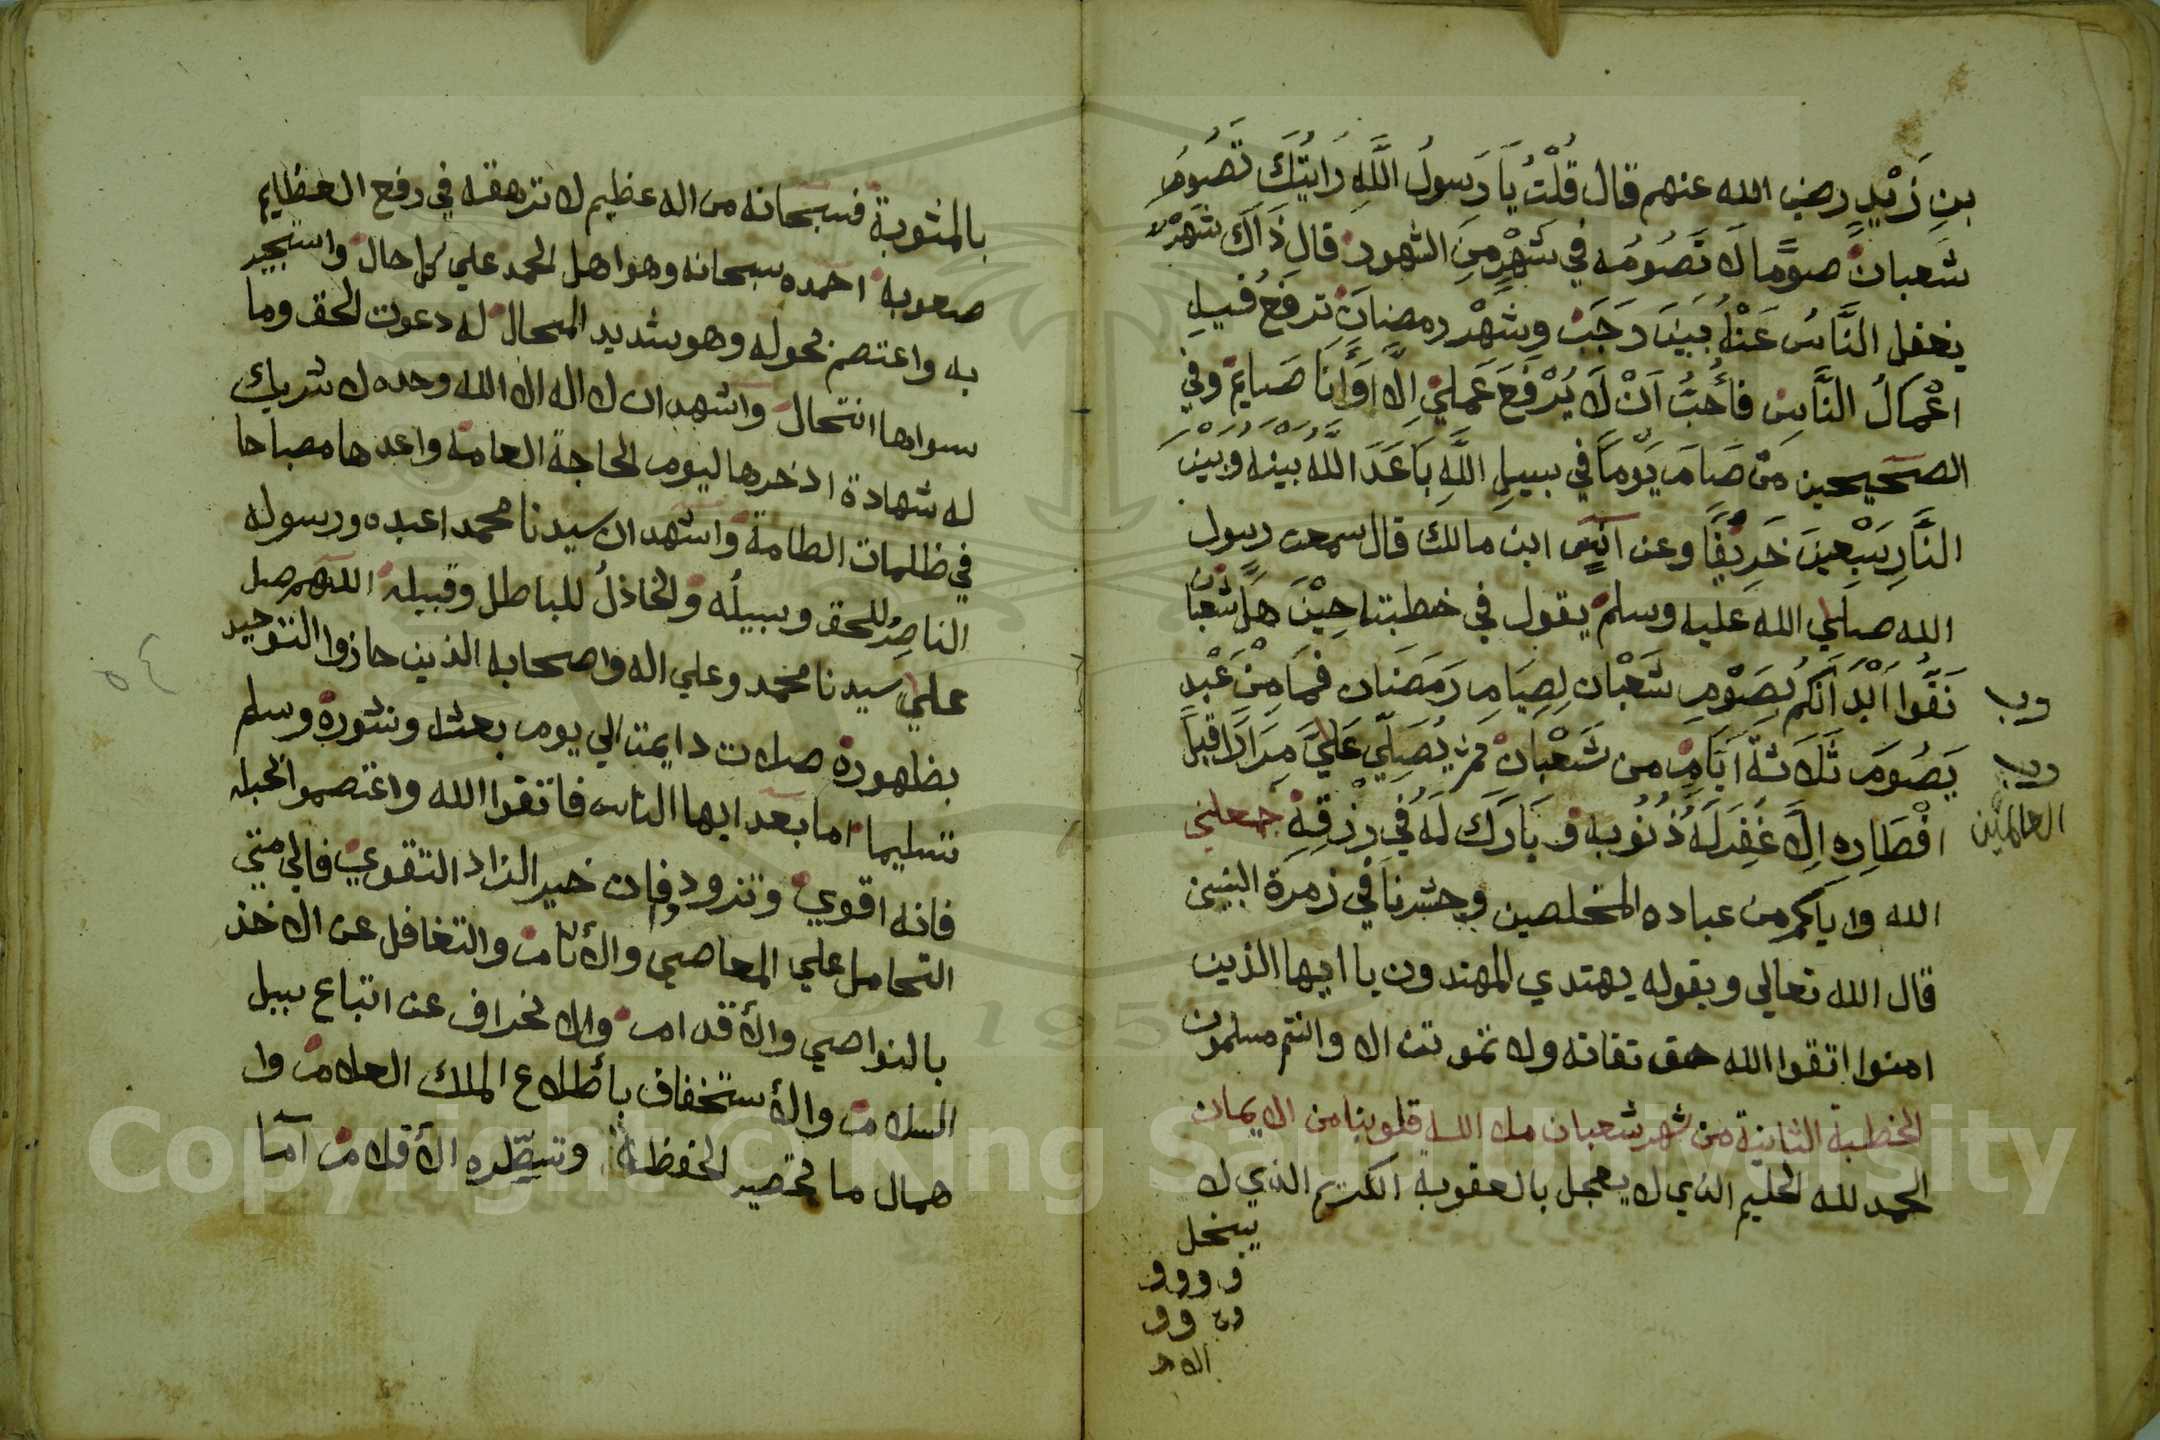 بنِ زَيْدٍ رضي الله عنهم قال قُلْتُ يَا رَسولُ اللَّهِ رَايتُكَ تَصُومُ
شَعبان صومًا لَا تَصُومُه في شَهْرٍ مِنَ الشهور قال ذَاكَ شَهْر
يغفل النَّاسُ عَنْهُ بَيْنَ رَجَبْ وشَهْر رمضانَ ترفَعُ فيهِ
اعْمَالُ النَّاسِ فأُحبُّ اَنْ لَا يُرْفَعَ عَمَلِيْ اِلَّا وَأَنَا صَايمٌ وفي
الصحيحين مَنْ صَامَ يَوْمًا في سبيلِ اللَّهِ بَاعَدَ اللَّهُ بينه وَبينَ
النَّارِ سَبْعِينَ خَرِيْفًا وعن اَنَسٍ ابن مالك قال سمعت رسول
الله صلي الله عليه وسلم يقول في خطبته حِيْنَ هَلَّ شعبان
نَقُّوا اَبْدَانَكُمْ بصَوْمِ شَعْبَان لِصِيَامِ رَمَضَان فمَا مِنْ عَبْدٍ
يَصُومَ ثَلَاثةَ اَيَّامٍ من شَعْبَان ثم يُصَلّي عَلَيَّ مِرَارًا قبل
افْطَارِه اِلَّا غَفِرَلَهُ ذُنُوبه وبَارَكَ لَهُ في رِزْقِهِ جعلني
الله واياكم من عباده المخلصين وحشرنا في زمرة النبين
قال الله تعالي وبقوله يهتدي المهتدون يا ايها الذين
امنوا اتقوا الله حق تقاته ولا تموتن الا وانتم مسلمون
الخطبة الثانية من شهر شعبان ملا الله قلوبنا من الايمان
الحمد لله الحليم الذي لا يعجل بالعقوبة الكريم الذي لا
يبخل
العالمين
بالمثوبة فسبحانه من اله عظيم لا ترهقه في رفع العظايم
صعوبه احمده سبحانه وهو اهل الحمد علي كل حال واستجير
به واعتصم بحوله وهو شديد المحال له دعوت الحق وما
سواها انتحال واشهد ان لا اله الا الله وحده لا شريك
له شهادة ادخرها ليوم الحاجة العامه واعدها مصباحا
في ظلمات الطامة واشهد ان سيدنا محمدا عبده ورسوله
الناصِرُ للحق وسبيلُه والخاذلُ للباطل وقبيله اللهم صل
علي سيدنا محمد وعلي اله واصحابه الذين حازوا التوحيد
بظهوره صلات دايمت الي يوم بعثه ونشوره وسلم
تسليما اما بعد ايها الناس فاتقوا الله واعتصموا بحبله
فانه اقوي وتزودوا فان خير الزاد التقوي فالي متي
التحامل علي المعاصي والأثام والتغافل عن الاخذ
بالنواصي والأقدام والانحراف عن اتباع سبيل
السلام والأستخفاف بأطلاع الملك العلام وا
همال ما تحصيه الحفظة وتسطّره الأقلام اما
٥٤
Copyright © King Saud University
195